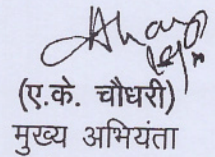 (ए.के. चौधरी)
मुख्य अभियंता